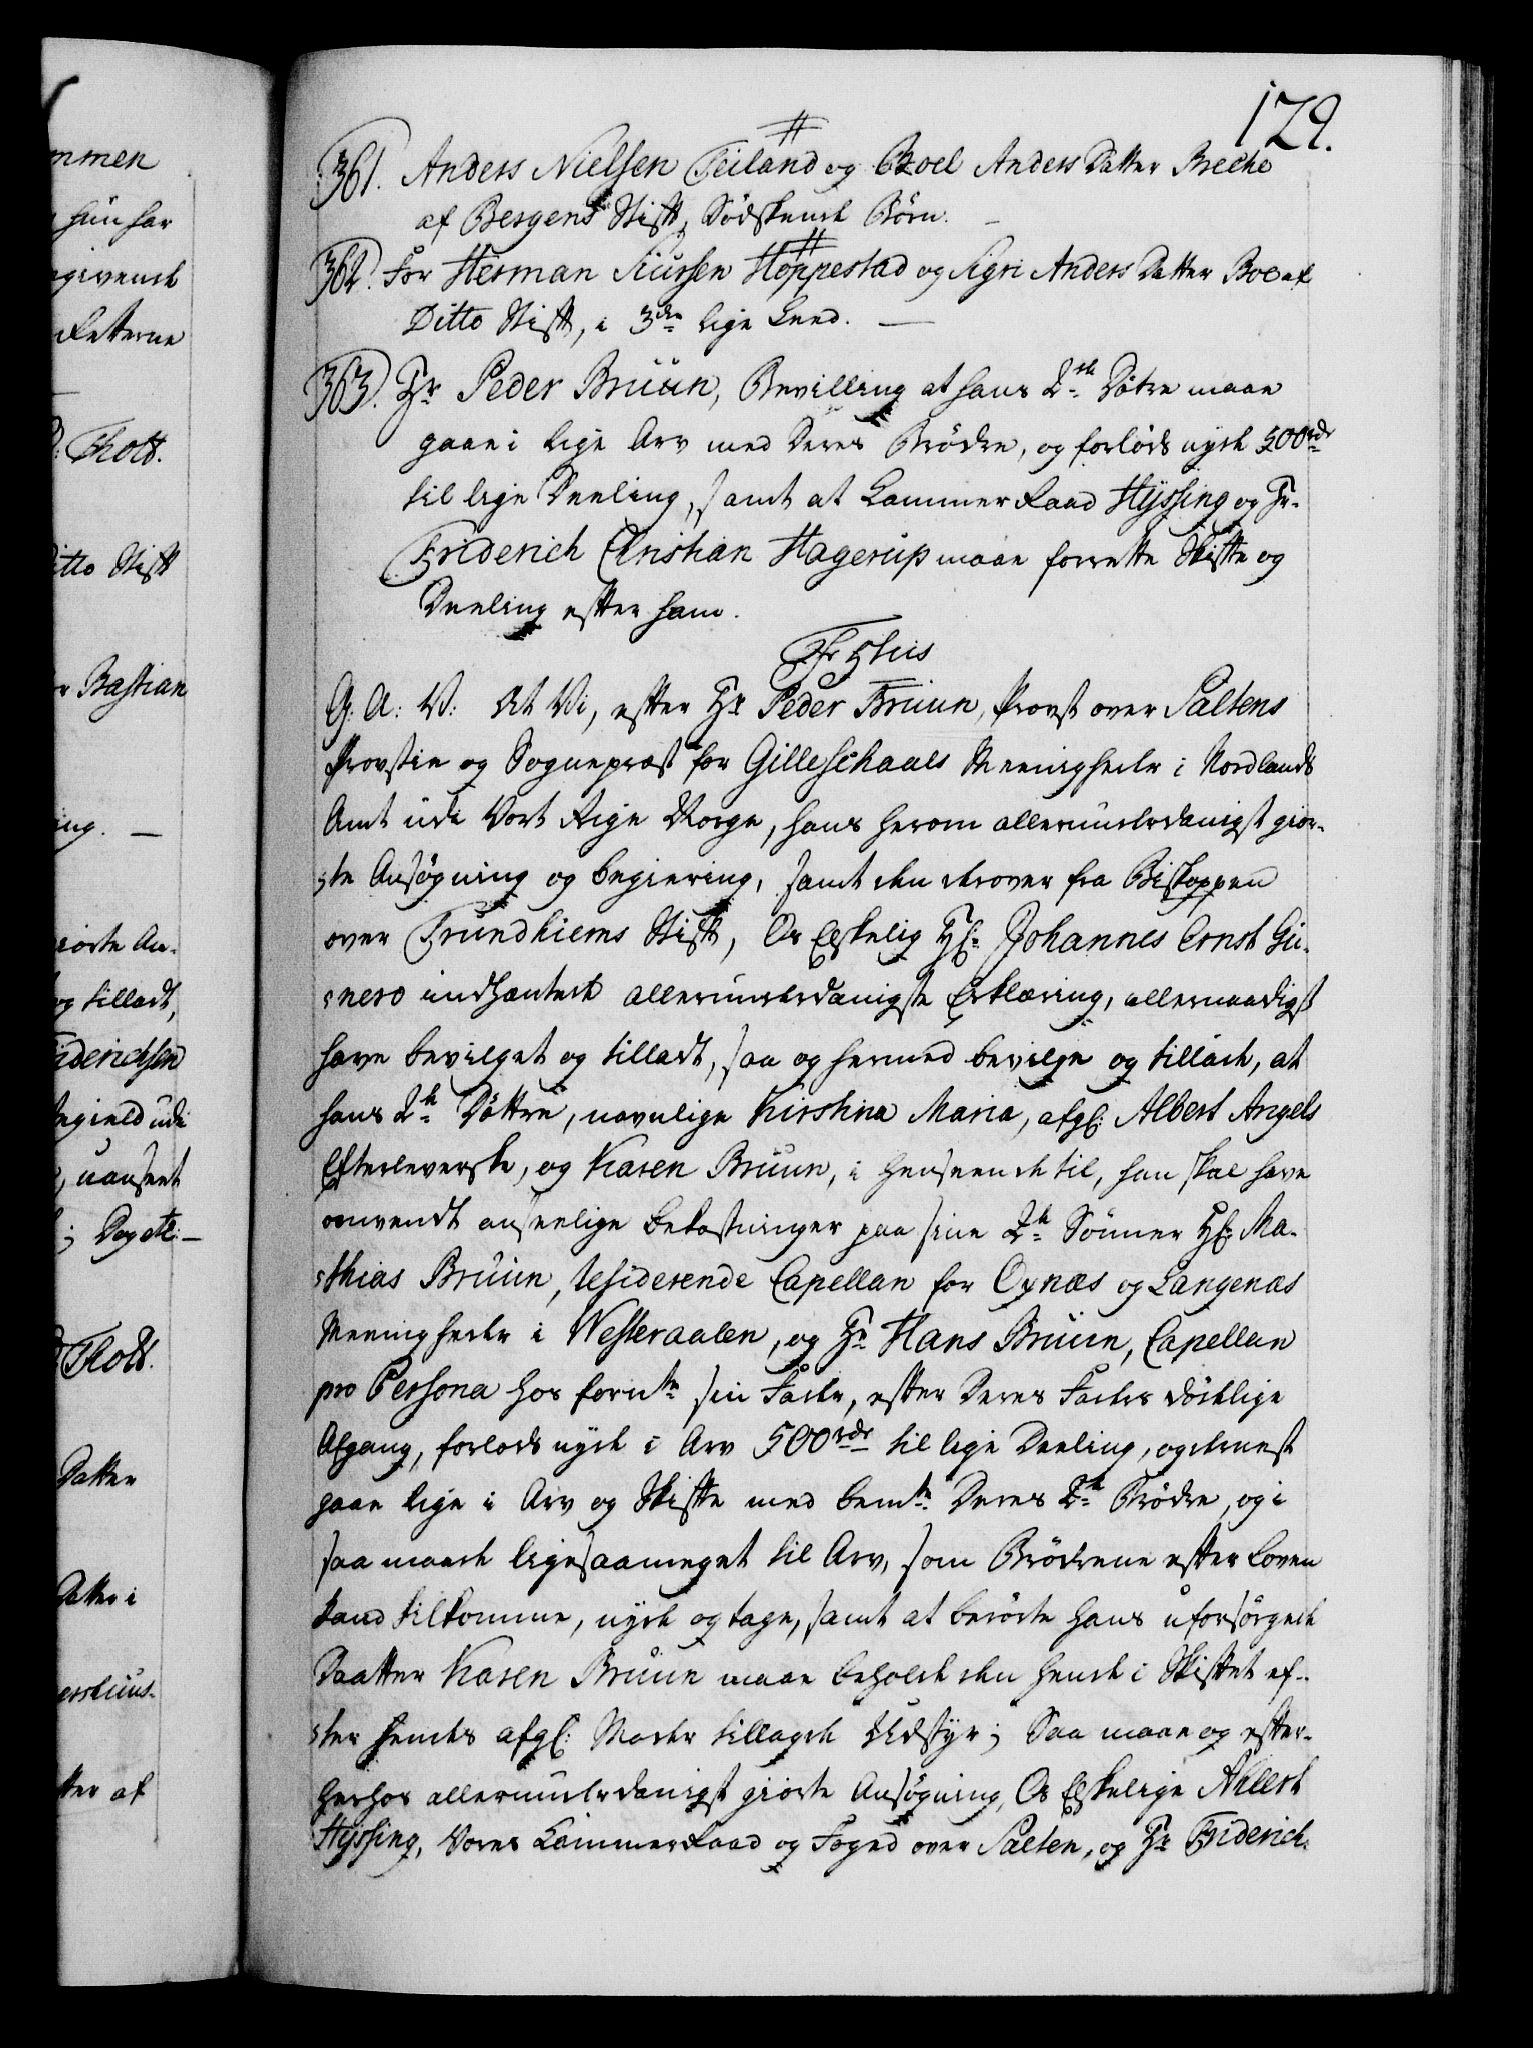 129.
361. Anders Nielsen Teiland og Boel Anders Datter Breche
af Bergens Stift, Sødskende Børn.
362. For Herman Siursen Hoppestad og Sigri Anders Datter Boe af
Ditto Stift, i 3die lige Leed. —
363. Hr Peder Bruun, Bevilling at hans 2de Døtre maae
gaae i lige Arv med Deres Brødre, og forlods nyde 500rdr
til lige Deeling, samt at Cammer Raad Hyssing og Hr
Friderich Christian Hagerup maae forrette Skifte og
Deeling efter ham.
Fr 5tus
G: A: V: At Vi, efter Hr Peder Bruun, Provst over Saltens
Provstie og Sognepræst for Gilleschaals Meenigheder i Nordlands
Amt udi Vort Rige Norge, hans herom allerunderdanigst gior-
te Ansøgning og begiering, samt den derover fra Biskoppen
over Trundhiems Stift, Os Elskelig Hr: Johannes Ernst Gu-
nero indhæntede allerunderdanigste Erklæring, allernaadigst
have bevilget og tilladt, saa og hermed bevilge og tillade, at
hans 2de Døttre, navnlige Kirstina Maria, afgl: Albert Angels
Efterleverske, og Karen Bruun, i henseende til, han skal have
anvendt anseelige bekostninger paa sine 2de Sønner Hr: Ma-
thias Bruun, residerende Capellan for Øxnæs og Langenæs
Meenigheder i Westeraalen, og Hr Hans Bruun, Capellan
pro Persona hos fornte sin Fader, efter Deres Faders dødelige
Afgang, forlods nyde i Arv 500rdr til lige Deeling, og dernest
gaae lige i Arv og Skifte med bemte Deres 2de Brødre, og i
saa maade ligesaameget til Arv, som Brødrene efter Loven
kand tilkomme, nyde og tage, samt at berørte hans uforsørgede
Daatter Karen Bruun maae beholde den hende i Skiftet ef-
ter hendes afgl: Moder tillagde Udstyr; Saa maae og efter
herhos allerunderdanigst giorte Ansøgning, Os Elskelige Ahlert
Hyssing, Vores Cammer Raad og Foged over Salten, og Hr Friderich